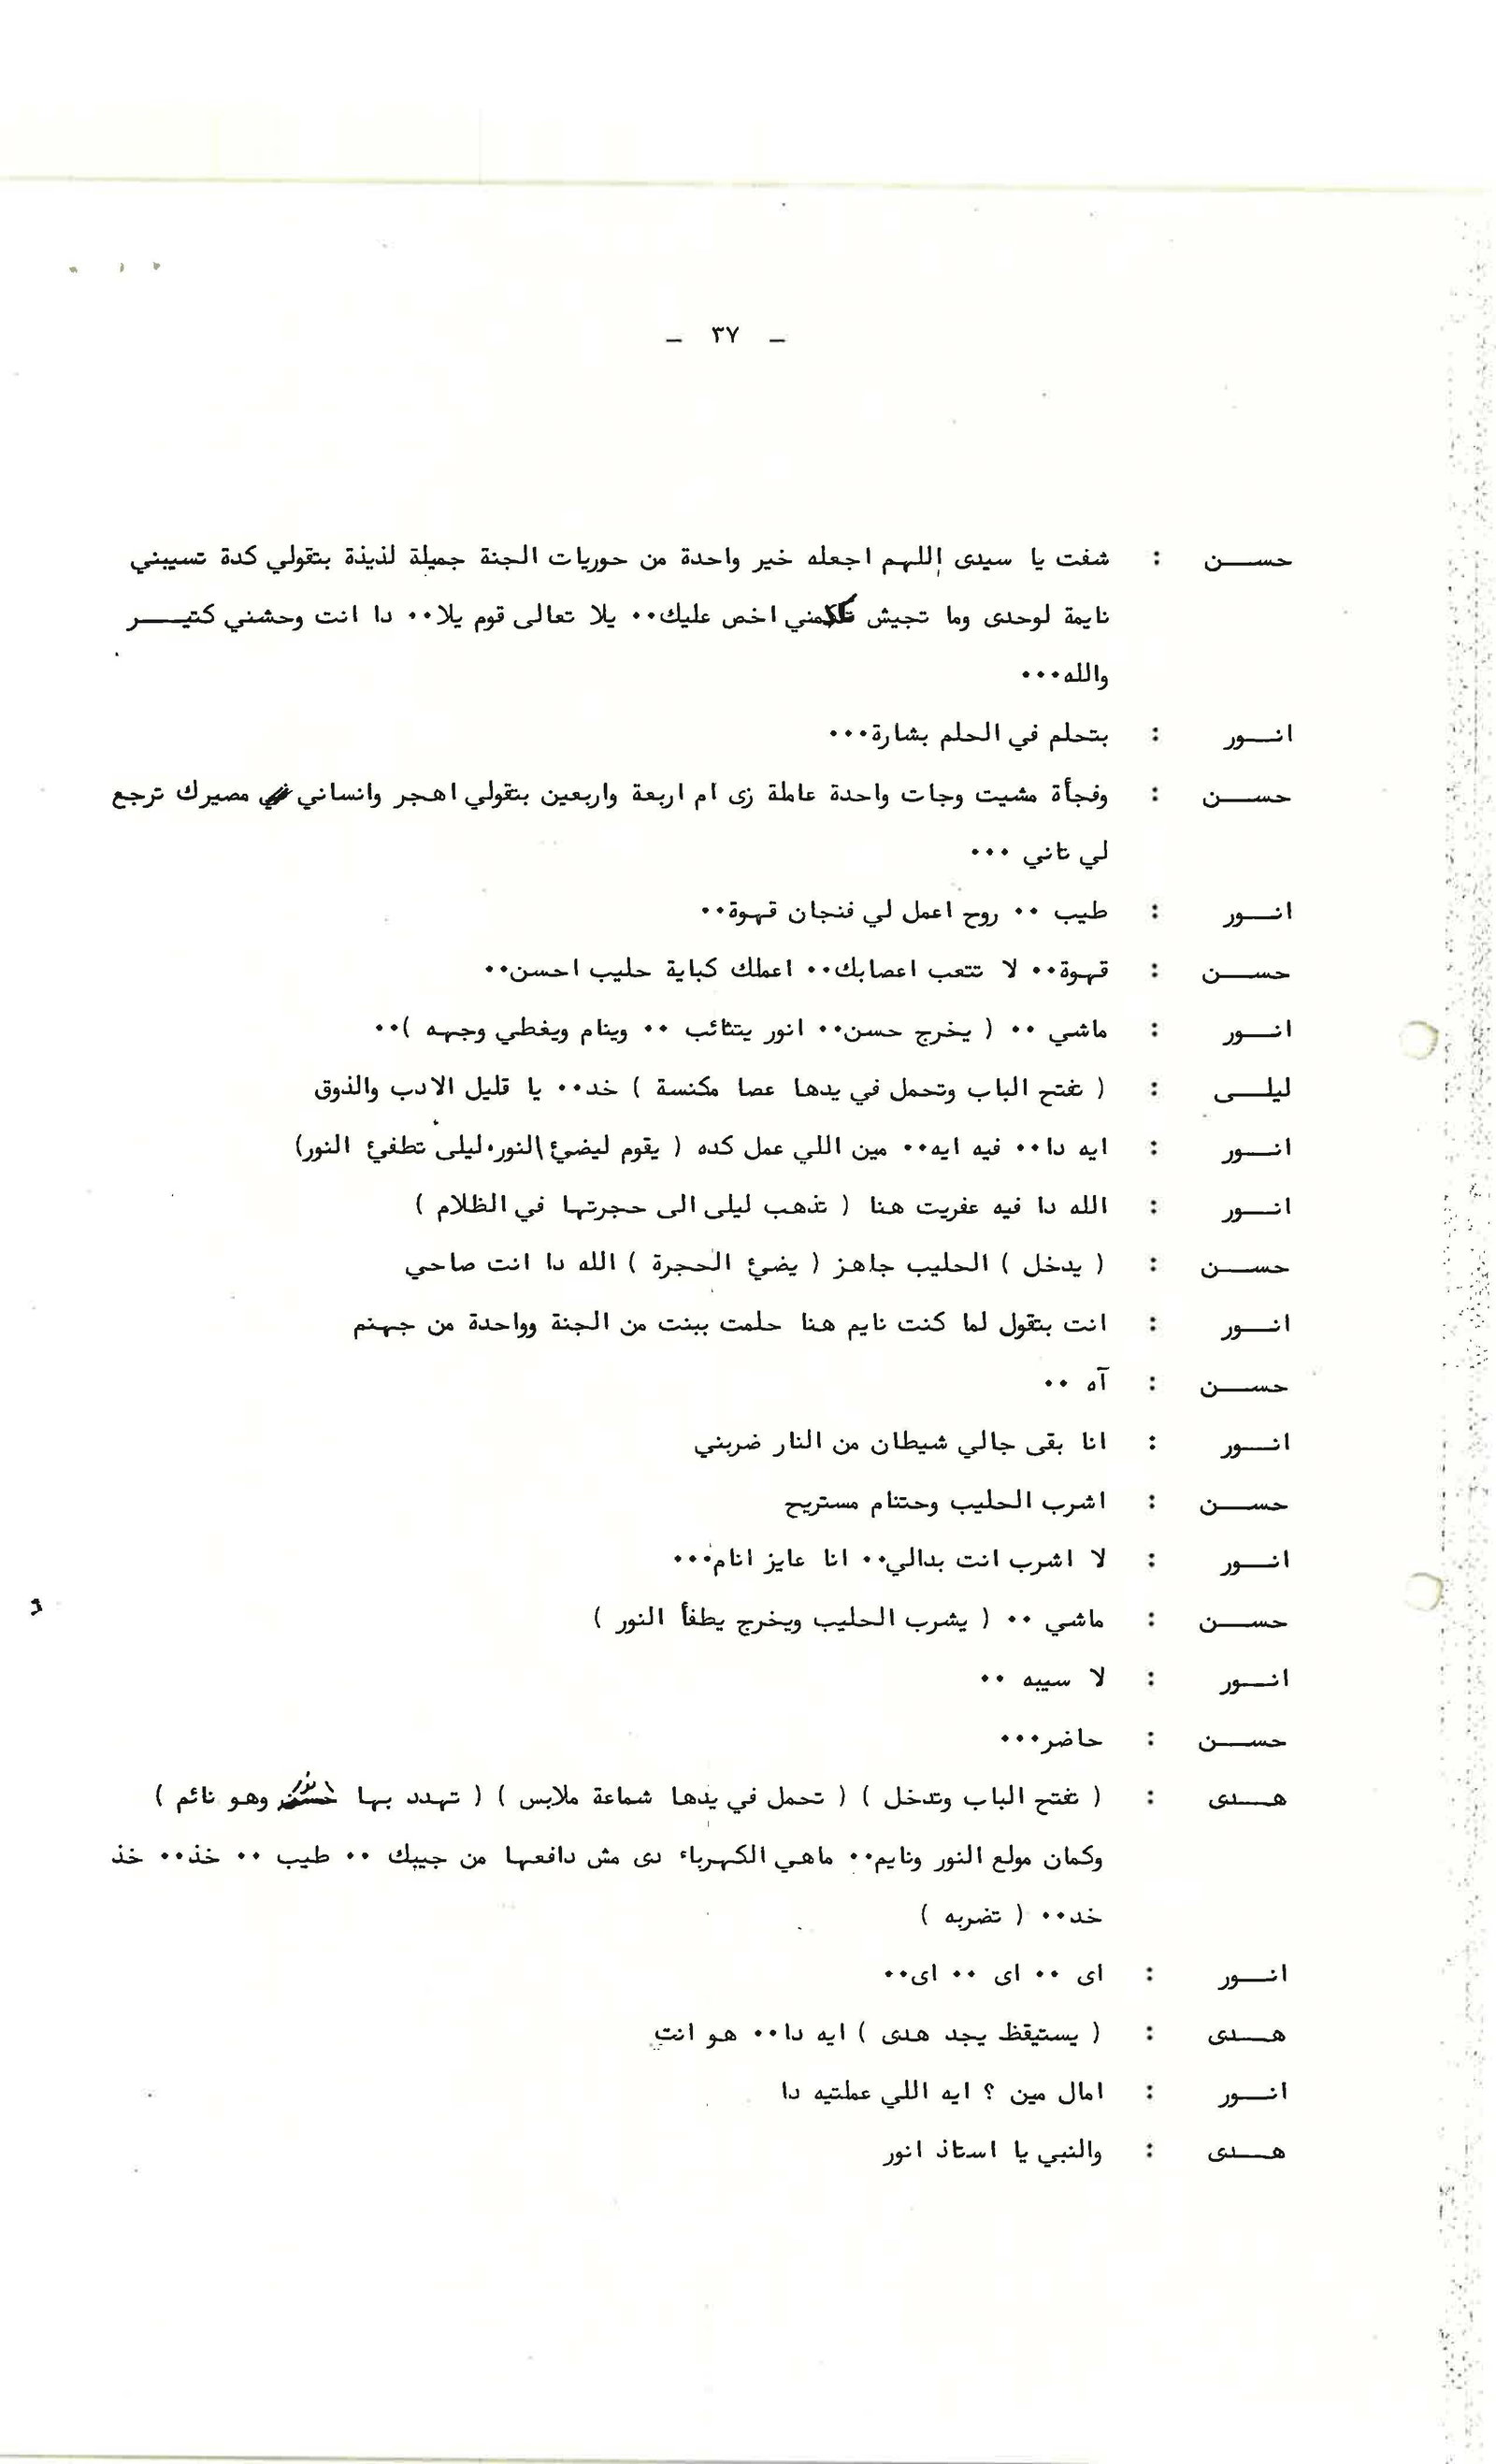 - ٣٧ -
حسن : شفت يا سيدى اللهم اجعله خير واحدة من حوريات الجنة جميلة لذيذة بتقولي كدة تسيبني
نايمة لوحدى وما تجيش تكلمني اخص عليك٠٠ يلا تعالى قوم يلا٠٠ دا انت وحشني كتير
والله٠٠٠
انور : بتحلم في الحلم بشارة٠٠٠
حسن : وفجأة مشيت وجات واحدة عاملة زى ام اربعة واربعين بتقولي اهجر وانساني مصيرك ترجع
لي تاني ٠٠٠
انور : طيب ٠٠ روح اعمل لي فنجان قهوة٠٠
حسن : قهوة٠٠ لا تتعب اعصابك٠٠ اعملك كباية حليب احسن٠٠
انور : ماشي ٠٠ ( يخرج حسن٠٠ انور يتثائب ٠٠ وينام ويغطي وجهه )٠٠
ليلى : ( تفتح الباب وتحمل في يدها عصا مكنسة ) خد٠٠ يا قليل الادب والذوق
انور : ايه دا٠٠ فيه ايه٠٠ مين اللي عمل كده ( يقوم ليضئ النور٠ليلى تطفئ النور)
انور : الله دا فيه عفريت هنا ( تذهب ليلى الى حجرتها في الظلام )
حسن : ( يدخل ) الحليب جاهز ( يضئ الحجرة ) الله دا انت صاحي
انور : انت بتقول لما كنت نايم هنا حلمت ببنت من الجنة وواحدة من جهنم
حسن : آه ٠٠
انور : انا بقى جالي شيطان من النار ضربني
حسن : اشرب الحليب وحتنام مستريح
انور : لا اشرب انت بدالي٠٠ انا عايز انام٠٠٠
حسن : ماشي ٠٠ ( يشرب الحليب ويخرج يطفأ النور )
انور : لا سيبه ٠٠
حسن : حاضر٠٠٠
هدى : ( تفتح الباب وتدخل ) ( تحمل في يدها شماعة ملابس ) ( تهدد بها انور وهو نائم )
وكمان مولع النور ونايم٠٠ ماهي الكهرباء دى مش دافعها من جيبك ٠٠ طيب ٠٠ خذ٠٠ خذ
خد٠٠ ( تضربه )
انور : اى ٠٠ اى ٠٠ اى٠٠
هدى : ( يستيقظ يجد هدى ) ايه دا٠٠ هو انت
انور : امال مين ؟ ايه اللي عملتيه دا
هدى : والنبي يا استاذ انور